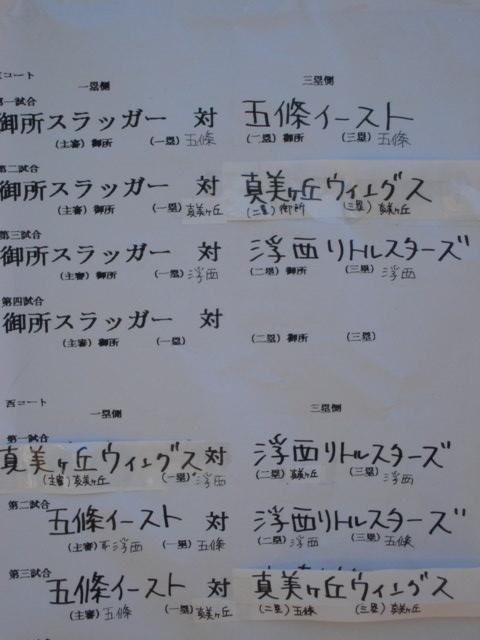 コート
一塁側 三塁側
第一試合
御所スラッガー 対 五條イースト
(主審)御所 (一塁)五條 (二塁)御所 (三塁)五條
第二試合
御所スラッガー 対 真美ヶ丘ウィングス
(主審)御所 (一塁)真美ヶ丘 (二塁)御所 (三塁)真美ヶ丘
第三試合
御所スラッガー 対 浮西リトルスターズ
(主審)御所 (一塁)浮西 (二塁)御所 (三塁)浮西
第四試合
御所スラッガー 対
(主審)御所 (一塁) (二塁)御所 (三塁)
西コート
一塁側 三塁側
第一試合
真美ヶ丘ウィングス 対 浮西リトルスターズ
(主審)真美ヶ丘 (一塁)浮西 (二塁)真美ヶ丘 (三塁)浮西
第二試合
五條イースト 対 浮西リトルスターズ
(主審)浮西 (一塁)五條 (二塁)浮西 (三塁)五條
第三試合
五條イースト 対 真美ヶ丘ウィングス
(主審)五條 (一塁)真美ヶ丘 (二塁)五條 (三塁)真美ヶ丘